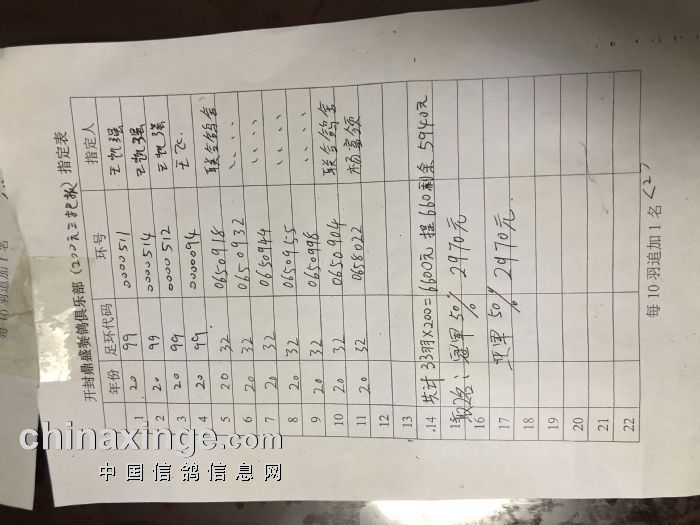 开封鼎盛赛鸽俱乐部(200元三把抓)指定表
年份 足环代码 环号 指定人
1 20 99 0000511 王凯强
2 20 99 0000514 王凯强
3 20 99 0000512 王凯强
4 20 99 0000094 王飞
5 20 32 0650918 联合鸽舍
6 20 32 0650932 、、、、
7 20 32 0650944 、、、、
8 20 32 0650955 、、、、
9 20 32 0650998 、、、、
10 20 32 0650904 联合鸽舍
11 20 32 0658022 杨富领
12
13
14 共计33羽×200=6600元 提660剩余5940元
15 取2名:冠军50% 2970元
16
17 亚军50% 2970元.
18
19
20
21
22
每10羽追加1名<2>
每10羽追加1名
chinaxinge.com
中国信鸽信息网